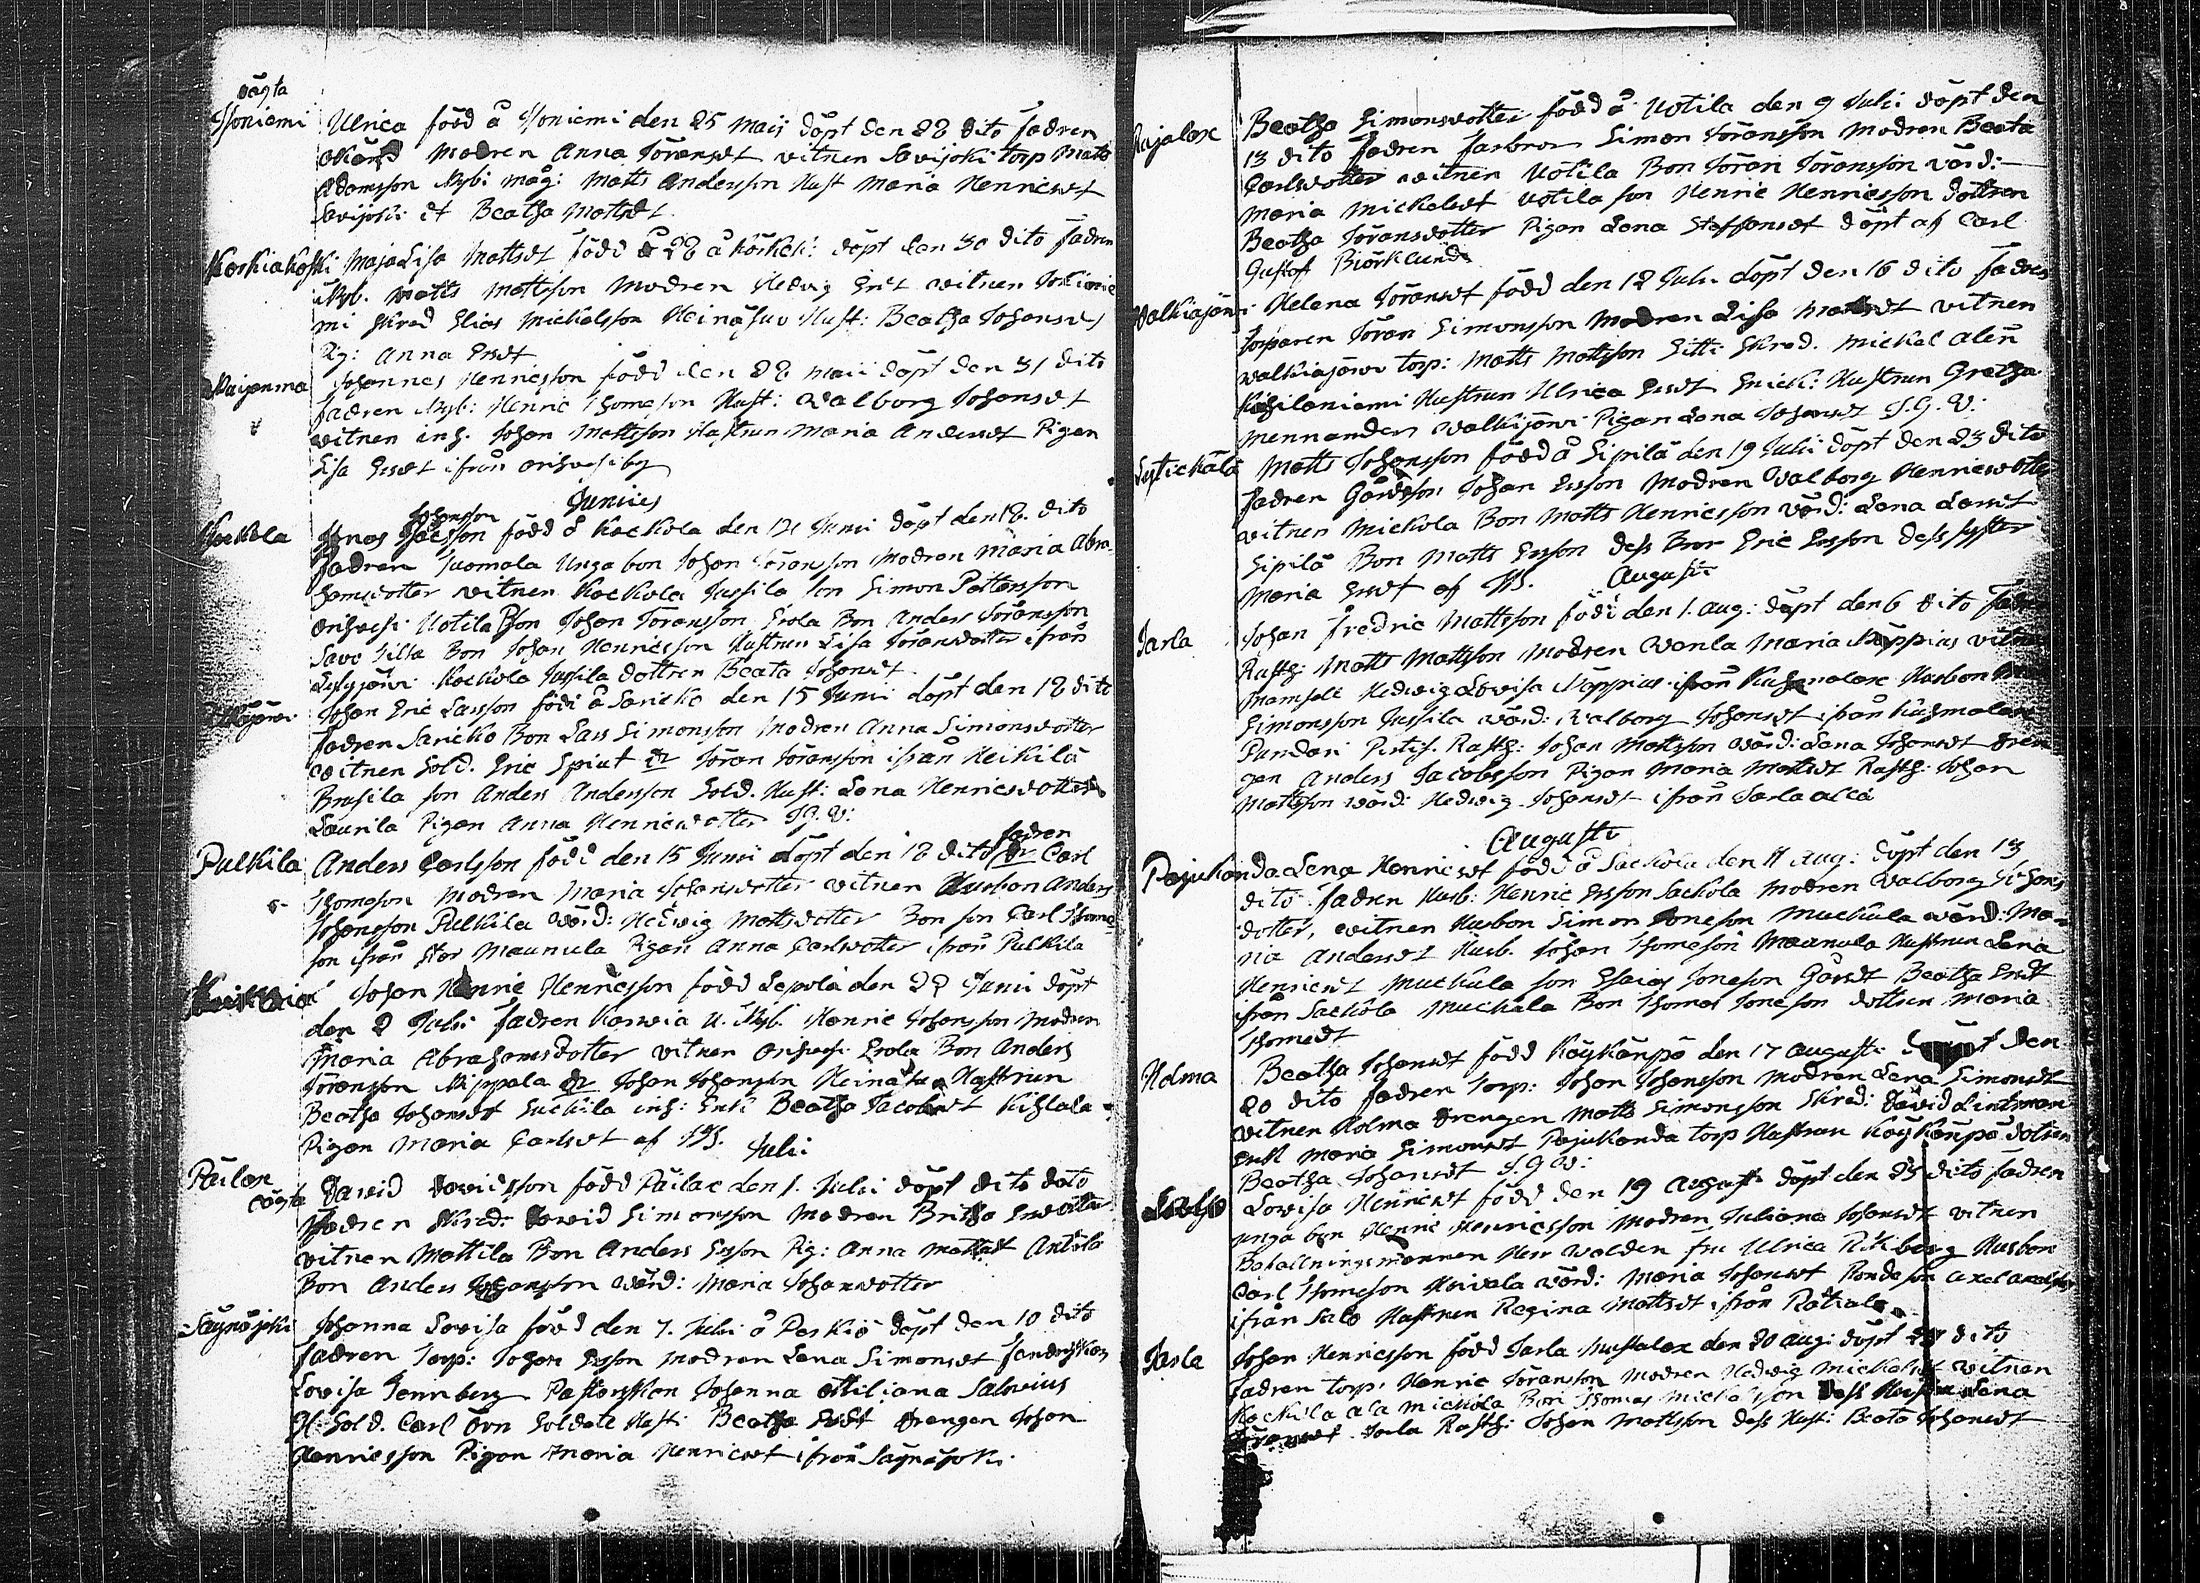 oägta
Isoniemi Ulrica född å Isoniemi den 25 Maij döpt den 28 dito fadren
okänd modren Anna Töransdt vitnen Savijoki torp Matts
Adamsson Nybi måg: Matts Andersson Hust Maria Henricsdt
Savijoki dt Beatha Mattsdt
Koskiakoski Maja Lisa Mattsdt född d 28 å Koskeki döpt den 30 dito fadren
Nyb. Matts Mattsson modren Hedvig Ersdt vitnen
mi skred Elias Mickelsson Heinäsuo Hust: Beatha Johansdt
Pig: Anna Ersdt
Johannes Henricsson född den 28 Maii döpt den 31 dito
fadren Nyb: Henric Thomeson Hust: Walborg Johansdt
vitnen inh. Johan Mattsson Hustrun Maria Andersdt Pigan
Lisa Ersdt ifrån Orihvesi by
Junius
Johansson
Kockola Jonas född å Kockola den 12 Junii döpt den 18. dito
fadren Tuomola Unga bon Johan Töransson Modren Maria Abra-
hamsdotter vitnen Kockola Jussila son Simon Pettersson
Orihvesi Uotila Bon Johan Töransson Erola Bon Anders Töransson
Savo Bon Johan Henricsson Hustrun Lisa Töransdotter ifrån
Kockola Jussila dottren Beata Johansdt
Johan Eric Larsson född å Saricko den 15 Junii döpt den 18 dito
fadren Saricko Bon Lars Simonsson Modren Anna Simonsdotter
vitnen Sold. Eric Spiut dr Töran Töransson ifrån Heikilä
Brusila son Anders Andersson Sold. Hust: Lena Henricsdotter
Laurila Pigan Anna Henricsdotter J. G. W:
fadren
Pulkila Anders Carlsson född den 15 Junii döpt den 18 dito Carl
Thomeson modren Maria Johansdotter vitnen Husbon Anders
Johansson Pulkila Wärd: Hedwig Mattsdotter Bon son Carl Thome-
son ifrån Stor Maunula Pigan Anna Carlsdotter ifrån Pulkila
Johan Henric Henricsson född Lepolä den 22 Junii döpt
den 2 Julii fadren Karvia U. Nyb. Henric Johansson modren
Maria Abrahamsdotter vitnen Orihvesi Erola Bon Anders
Töransson Nippala dr Johan Johansson Heinäsuo Hustrun
Beatha Johansdt Suckila inh: Enk: Beatha Jacobsdt Kihlala
Pigan Maria Carlsdt af HS.
Julii
Päilax
oägta David Davidsson född Päilax den 1. Julii döpt dito dato
fadren Skred: David Simonsson Modren Britha Ersdotter
vitnen Mattila Bon Anders Ersson Pig: Anna Mattsdt Antila
Bon Anders Johansson Wärd: Maria Johansdotter
Säynäjoki Johanna Lovisa född den 7. Julii å Perkiö döpt den 10 dito
fadren Torp: Johan Ersson modren Lena Simonsdt
Lovisa Tennberg Pastorskan Johanna Ottiliana Salovius
Sold. Carl Örn Soldate Hust: Beatha Ersdt drengen Johan
Henricsson Pigan Maria Henricsdt ifrån Säynäjoki.
Rajalax Beatha Simonsdotter född å Uotila den 9 Julii döpt den
13 dito fadren farbror Simon Töransson Modren Beata
Carlsdotter vitnen Uotila Bon Töran Töransson Wärd:
Maria Mickelsdt Uotila son Henric Henricsson dottren
Beatha Töransdotter Pigan Lena Staffansdt döpt af Carl
Gustof Biörklund
Walkiajärvi Helena Töransdt född den 12 Julii döpt den 16 dito fadren
Torparen Töran Simonsson Modren Lisa Mattsdt vitnen
Walkiajärvi torp: Matts Mattsson Sitti Skred. Mickel Alén
Kihilaniemi Hustrun Ulrica Ersdt Enck: Hustrun Gretha
Mennander Walkijärvi Pigan Lena Johansdt J. G. W:
Matts Johansson född å Sipilä den 19 Julii döpt den 23 dito
fadren Gårdsson Johan Ersson Modren Walborg Henricsdotter
vitnen Mickola Bon Matts Henricsson Wärd: Lena Larsdt
Sipilä Bon Matts Ersson dess Bror Eric Ersson dess syster
Maria Ersdt af HS.
Augusti
Jarla Johan Fredric Mattsson född den 1. Aug: döpt den 6 dito fadren
Rusth: Matts Mattsson Modren Wanla Maria Näppius vitnen
Mamsell Hedwig Lovisa Näppius ifrån Kuhmalax Husbon
Simonsson Jussila Wärd: Walborg Johansdt ifrån Kuhmalax
Pundari Pertis. Rusth: Johan Mattsson Wärd: Lena Johansdt dren-
gen Anders Jacobsson Pigan Maria Mattsdt Rusth: Johan
Mattsson Wärd: Hedwig Johansdt ifrån Sarla alla
Augusti
Pajukanda Lena Henricsdt född å Sackola den 11 Aug: döpt den 13
dito fadren Husb: Henric Ersson Sackola Modren Walborg Johans
dotter, vitnen Husbon Simon Joneson Muckula Wärd: Ma-
ria Andersdt Husb. Johan Thomeson Maunula Hustrun Lena
Henricsdt Muckula son Esaias Joneson Gårdt Beatha Ersdt
ifrån Sackola Muckula Bon Thomas Joneson dottren Maria
Thomedt
Holma Beatha Johansdt född Köykänpä den 17 Augusti döpt den
20 dito fadren Torp: Johan Johansson Modren Lena Simonsdt
vitnen Holma drengen Matts Simonsson Skred: David Lindman
Enk: Maria Simonsdt Pajukanda torp Hustrun Köykänpä dottren
Beatha Johansdt J. G. W:
Lovisa Henricsdt född den 19 Augusti döpt den 25 dito fadren
unga bon Henric Henricsson Modren Juliana Johansdt vitnen
Befallningsmannen Herr Walden fru Ulrica Rikberg Husbon
Carl Thomeson Kuivala Wärd: Maria Johansdt Rondason Axel Axelsson
ifrån Salo Hustrun Regina Mattsdt ifrån Rätiala
Jarla Johan Henricsson född Jarla Mustalax den 20 Aug: döpt 27 dito
fadren Torp: Henric Töransson Modren Hedwig Mickelsdt vitnen
Kockola ala Mickola Bon Thomas Mickelsson dess Hustru Lena
Töransdt Jarla Rusth: Johan Mattsson dess Hust: Beata Johansdt